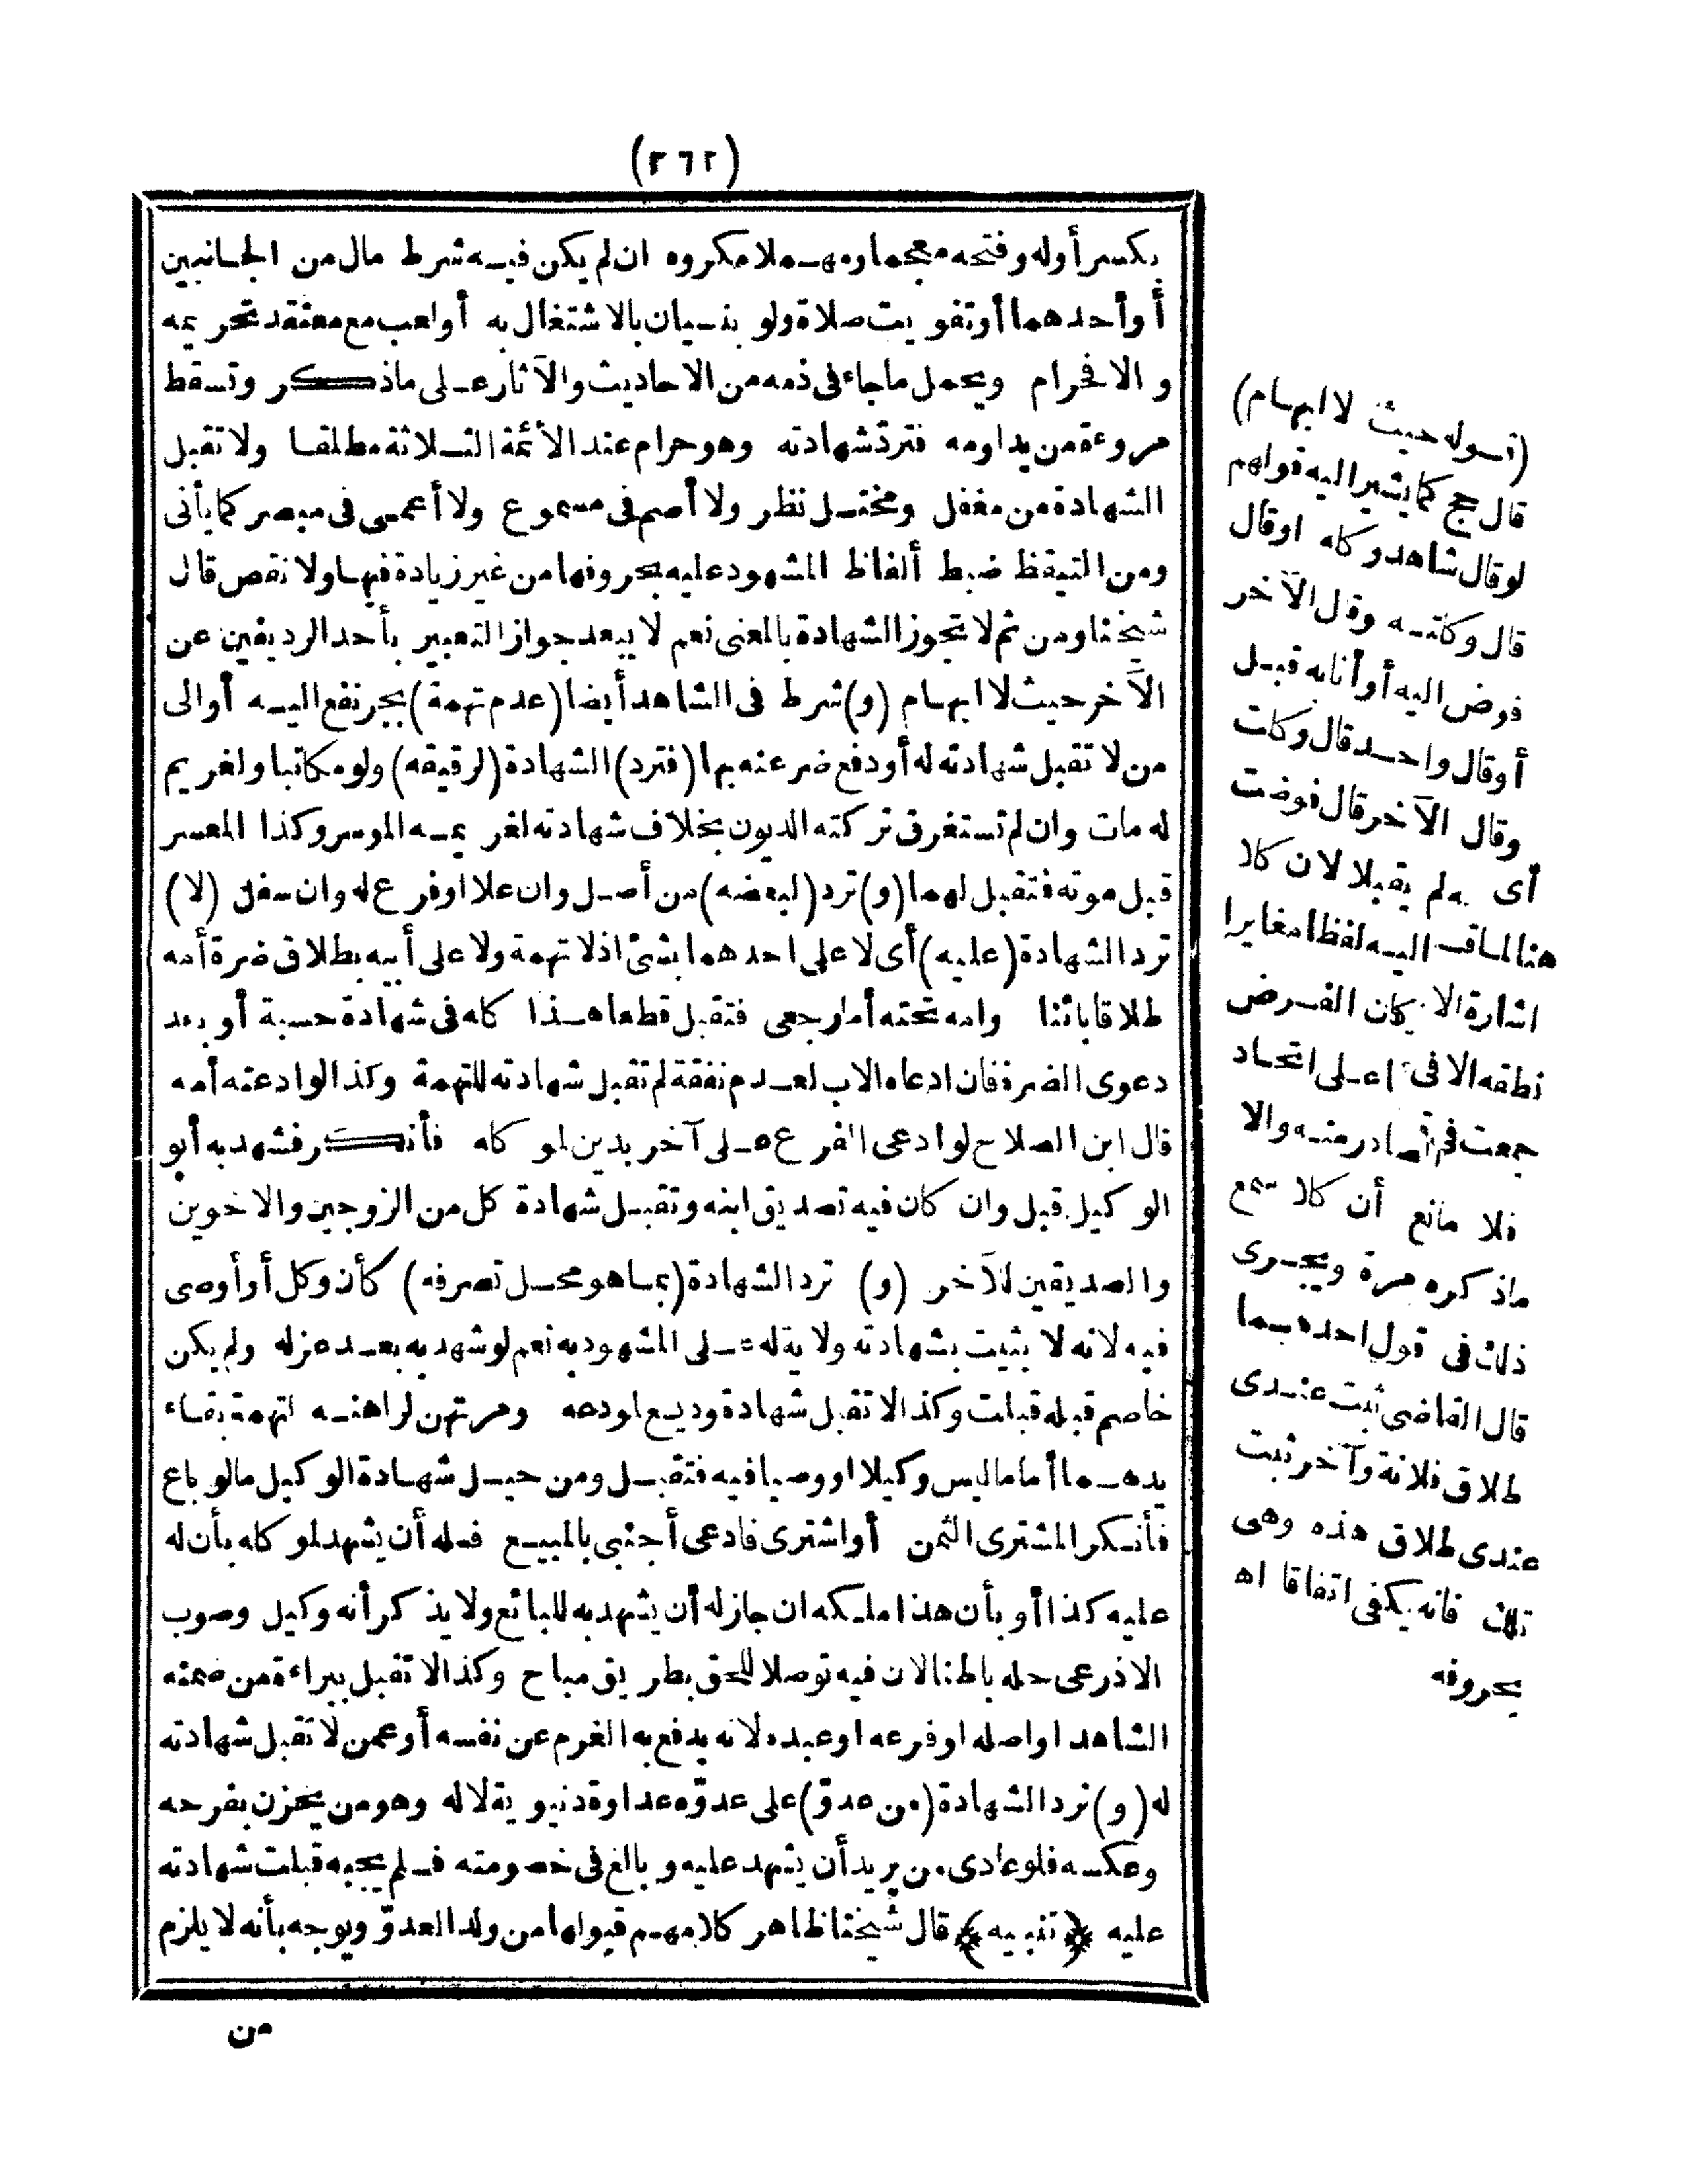 (٢٦٢)
بكسر أوله وفتحه معجما ومهملا مكروه ان لم يكن فيه شرط مال من الجانبين
أو أحدهما أو تفويت صلاة ولو بنسيان بالاشتغال به أو لعب مع معتقد تحريمه
والا فحرام ويحمل ما جاء فى ذمه من الاحاديث والآثار على ما ذكر وتسقط
مروءة من يداومه فترد شهادته وهو حرام عند الأئمة الثلاثة مطلقا ولا تقبل
الشهادة من مغفل ومختل نظر ولا أصم فى مسموع ولا أعمى فى مبصر كما يأتى
ومن التيقظ ضبط ألفاظ المشهود عليه بحروفها من غير زيادة فيها ولا نقص قال
شيخنا ومن ثم لا تجوز الشهادة بالمعنى نعم لا يبعد جواز التعبير بأحد الرديفين عن
الآخر حيث لا ابهام (و) شرط فى الشاهد أيضا (عدم تهمة) بجر نفع اليه أو الى
من لا تقبل شهادته له أو دفع ضر عنه بها (فترد) الشهادة (لرقيقه) ولو مكاتبا ولغريم
له مات وان لم تستغرق تركته الديون بخلاف شهادته لغريمه الموسر وكذا المعسر
قبل موته فتقبل لهما (و) ترد (لبعضه) من أصل وان علا او فرع له وان سفل (لا)
ترد الشهادة (عليه) أى لا على احدهما بشئ اذ لا تهمة ولا على أبيه بطلاق ضرة أمه
طلاقا بائنا وامه تحته أما رجعى فتقبل قطعا هذا كله فى شهادة حسبة أو بعد
دعوى الضرة فان ادعاه الاب لعدم نفقة لم تقبل شهادته للتهمة وكذا لو ادعته أمه
قال ابن الصلاح لو ادعى الفرع على آخر بدين لموكله فأنكر فشهد به أبو
الوكيل قبل وان كان فيه تصديق ابنه وتقبل شهادة كل من الزوجين والاخوين
والصديقين للآخر (و) ترد الشهادة (بما هو محل تصرفه) كأن وكل أو أوصى
فيه لانه لا يثبت بشهادته ولاية له على المشهود به نعم لو شهد به بعد عزله ولم يكن
خاصم قبله قبلت وكذا لا تقبل شهادة وديع لمودعه ومرتهن لراهنه لتهمة بقاء
يدهما أما ما ليس وكيلا او وصيا فيه فتقبل ومن حيل شهادة الوكيل ما لو باع
فأنكر المشترى الثمن أو اشترى فادعى أجنبى بالمبيع فله أن يشهد لموكله بأن له
عليه كذا أو بأن هذا ملكه ان جاز له أن يشهد به للبائع ولا يذكر أنه وكيل وصوب
الاذرعى حله باطنا لان فيه توصلا للحق بطريق مباح وكذا لا تقبل ببراءة من ضمنه
الشاهد او اصله او فرعه او عبده لانه يدفع به الغرم عن نفسه أو عمن لا تقبل شهادته
له (و) ترد الشهادة (من عدوّ) على عدوّه عداوة دنيوية لا له وهو من يحزن بفرحه
وعكسه فلو عادى من يريد أن يشهد عليه وبالغ فى خصومته فلم يجبه قبلت شهادته
عليه ﴿تنبيه﴾ قال شيخنا ظاهر كلامهم قبولها من ولد العدوّ ويوجه بأنه لا يلزم
من
(قوله حيث لا ابهام)
قال حج كما يشير اليه قولهم
لو قال شاهد وكله او قال
قال وكلته وقال الآخر
فوض اليه أو أنابه قبل
أو قال واحد قال وكلت
وقال الآخر قال فوضت
أى لم يقبلا لان كلا
هنا اليه لفظا مغايرا
اشارة الا كان الفرض
نطقه الا فى على اتحاد
جمعت منه والا
فلا مانع أن كلا سمع
ما ذكره مرة ويجرى
ذلك فى قول احدهما
قال القاضى ثبت عندى
طلاق فلانة وآخر ثبت
عندى طلاق هذه وهى
تلك فانه يكفى اتفاقا اه
بحروفه